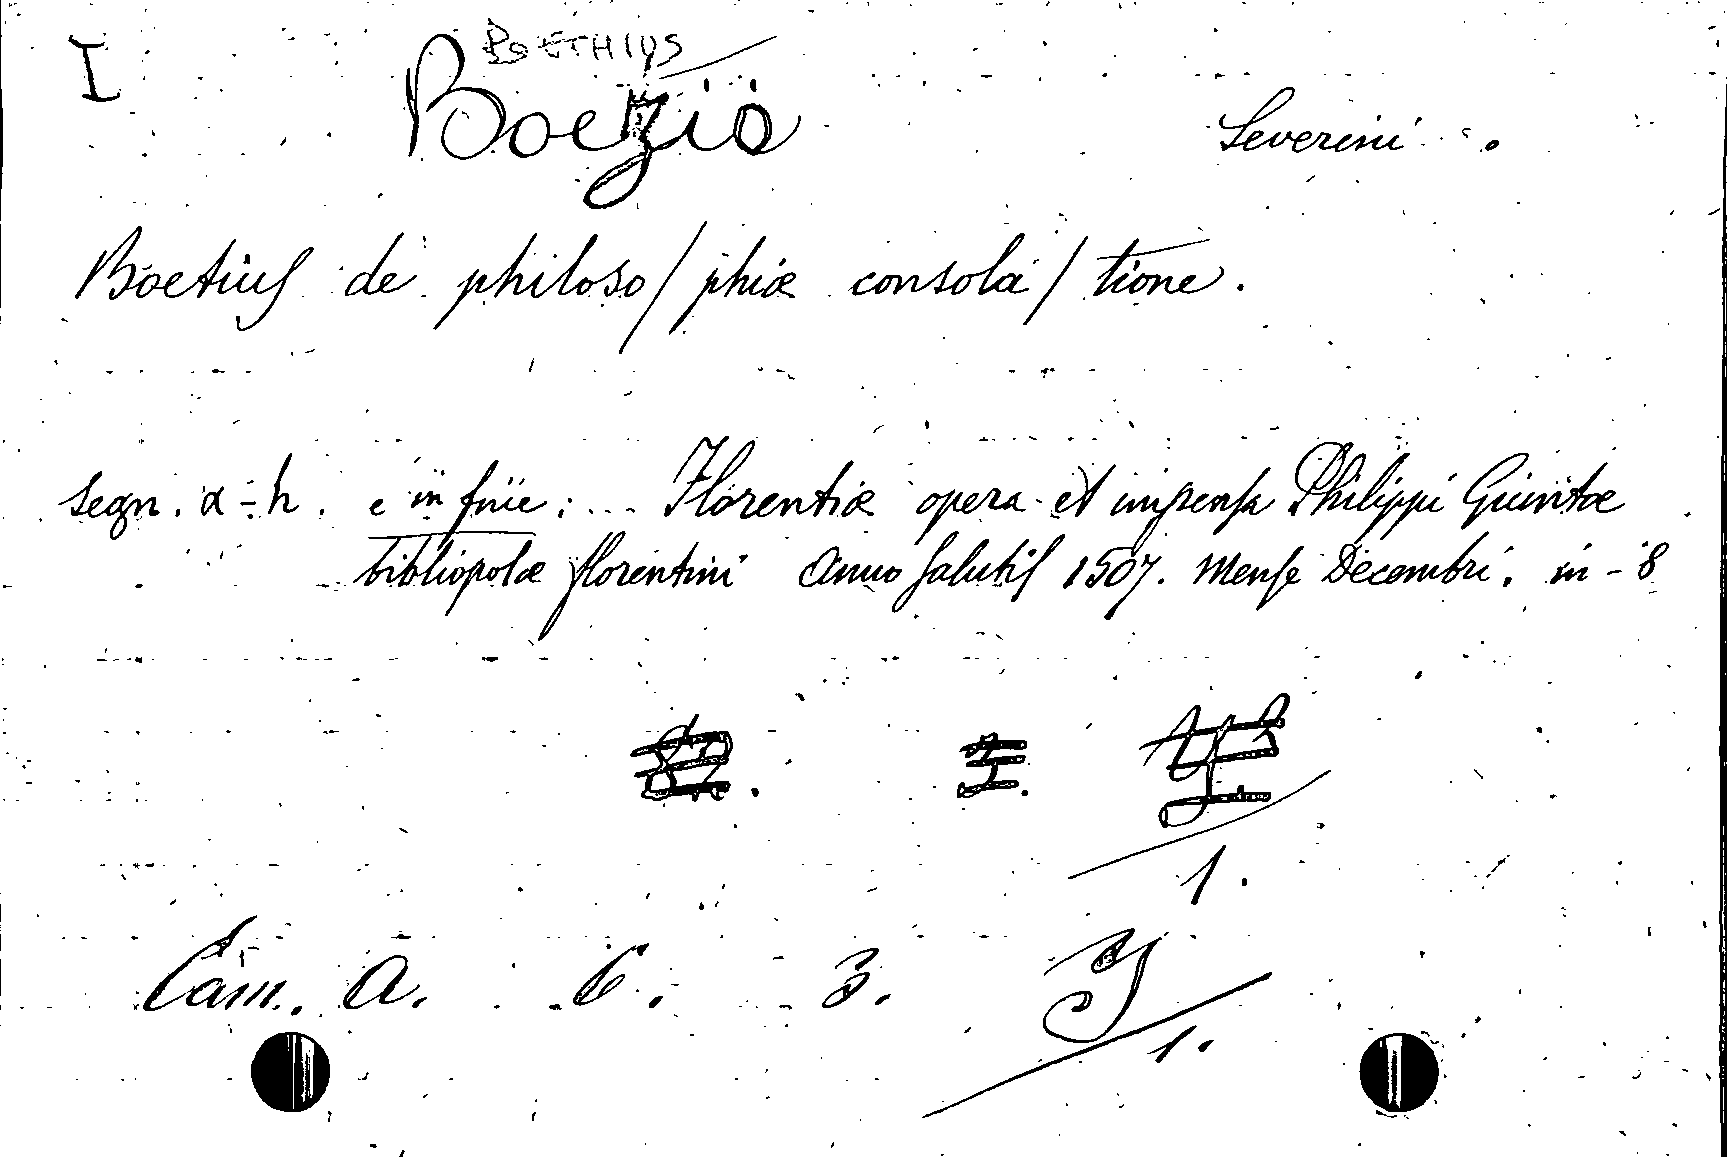 I
BOETHIUS
Boezio Severini
Boetius de philoso/phiæ consola/tione.
segn. a-h. e in fine: ... Florentiæ opera et impensa Philippi Giuntæ
bibliopolæ florentini Anno salutis 1507. Mense Decembri. in-8
1.
Cam. A. 6. 3. Y/1.